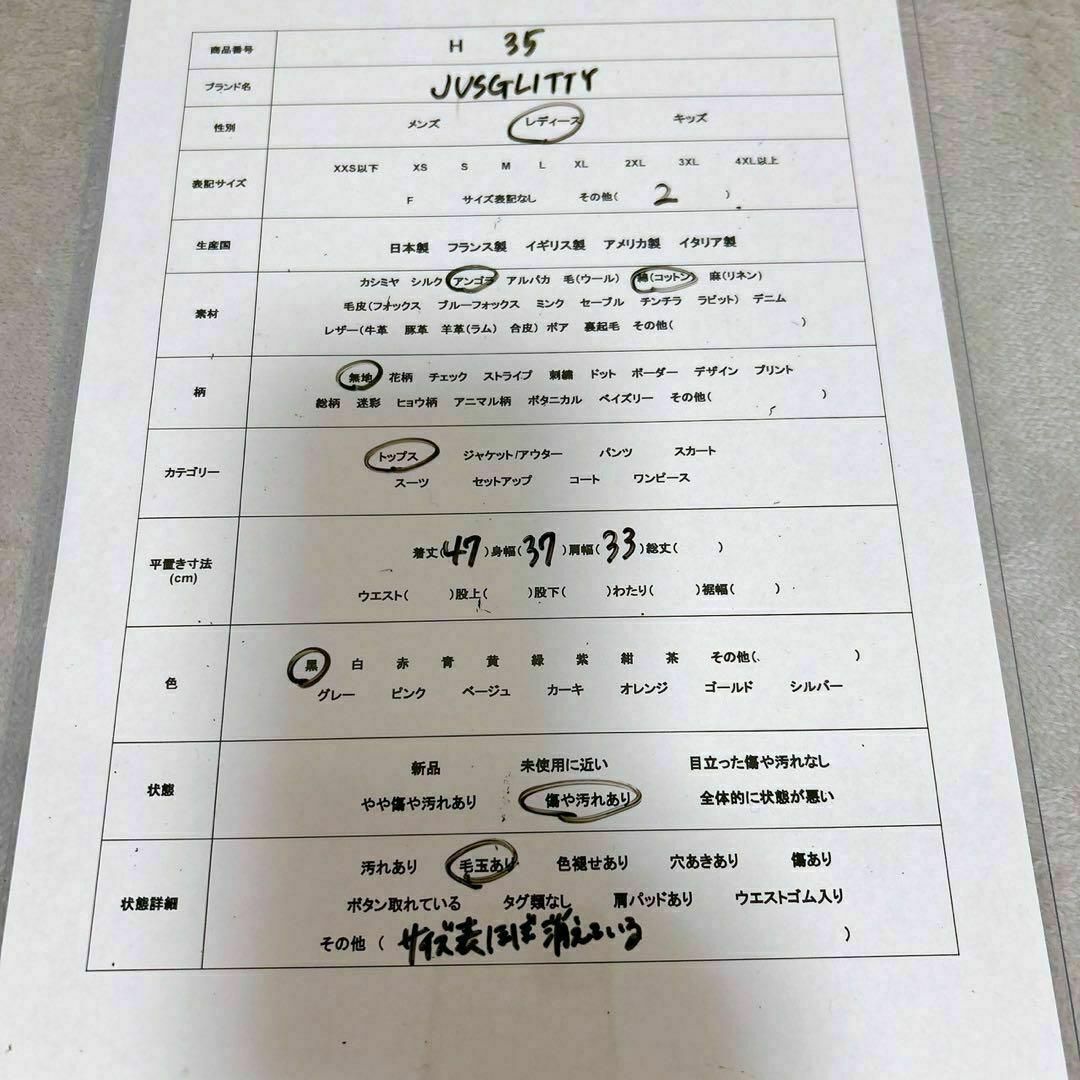 商品番号 H 35
ブランド名 JUSGLITTY
性別 メンズ レディース キッズ
表記サイズ XXS以下 XS S M L XL 2XL 3XL 4XL以上
F サイズ表記なし その他( 2 )
生産国 日本製 フランス製 イギリス製 アメリカ製 イタリア製
素材 カシミヤ シルク アンゴラ アルパカ 毛(ウール) 綿(コットン) 麻(リネン)
毛皮(フォックス ブルーフォックス ミンク セーブル チンチラ ラビット) デニム
レザー(牛革 豚革 羊革(ラム) 合皮) ボア 裏起毛 その他( )
柄 無地 花柄 チェック ストライプ 刺繍 ドット ボーダー デザイン プリント
総柄 迷彩 ヒョウ柄 アニマル柄 ボタニカル ペイズリー その他( )
カテゴリー トップス ジャケット/アウター パンツ スカート
スーツ セットアップ コート ワンピース
平置き寸法 着丈(47)身幅(37)肩幅(33)総丈( )
(cm) ウエスト( )股上( )股下( )わたり( )裾幅( )
色 黒 白 赤 青 黄 緑 紫 紺 茶 その他( )
グレー ピンク ベージュ カーキ オレンジ ゴールド シルバー
状態 新品 未使用に近い 目立った傷や汚れなし
やや傷や汚れあり 傷や汚れあり 全体的に状態が悪い
状態詳細 汚れあり 毛玉あり 色褪せあり 穴あきあり 傷あり
ボタン取れている タグ類なし 肩パッドあり ウエストゴム入り
その他 ( サイズ表ほぼ消えている )